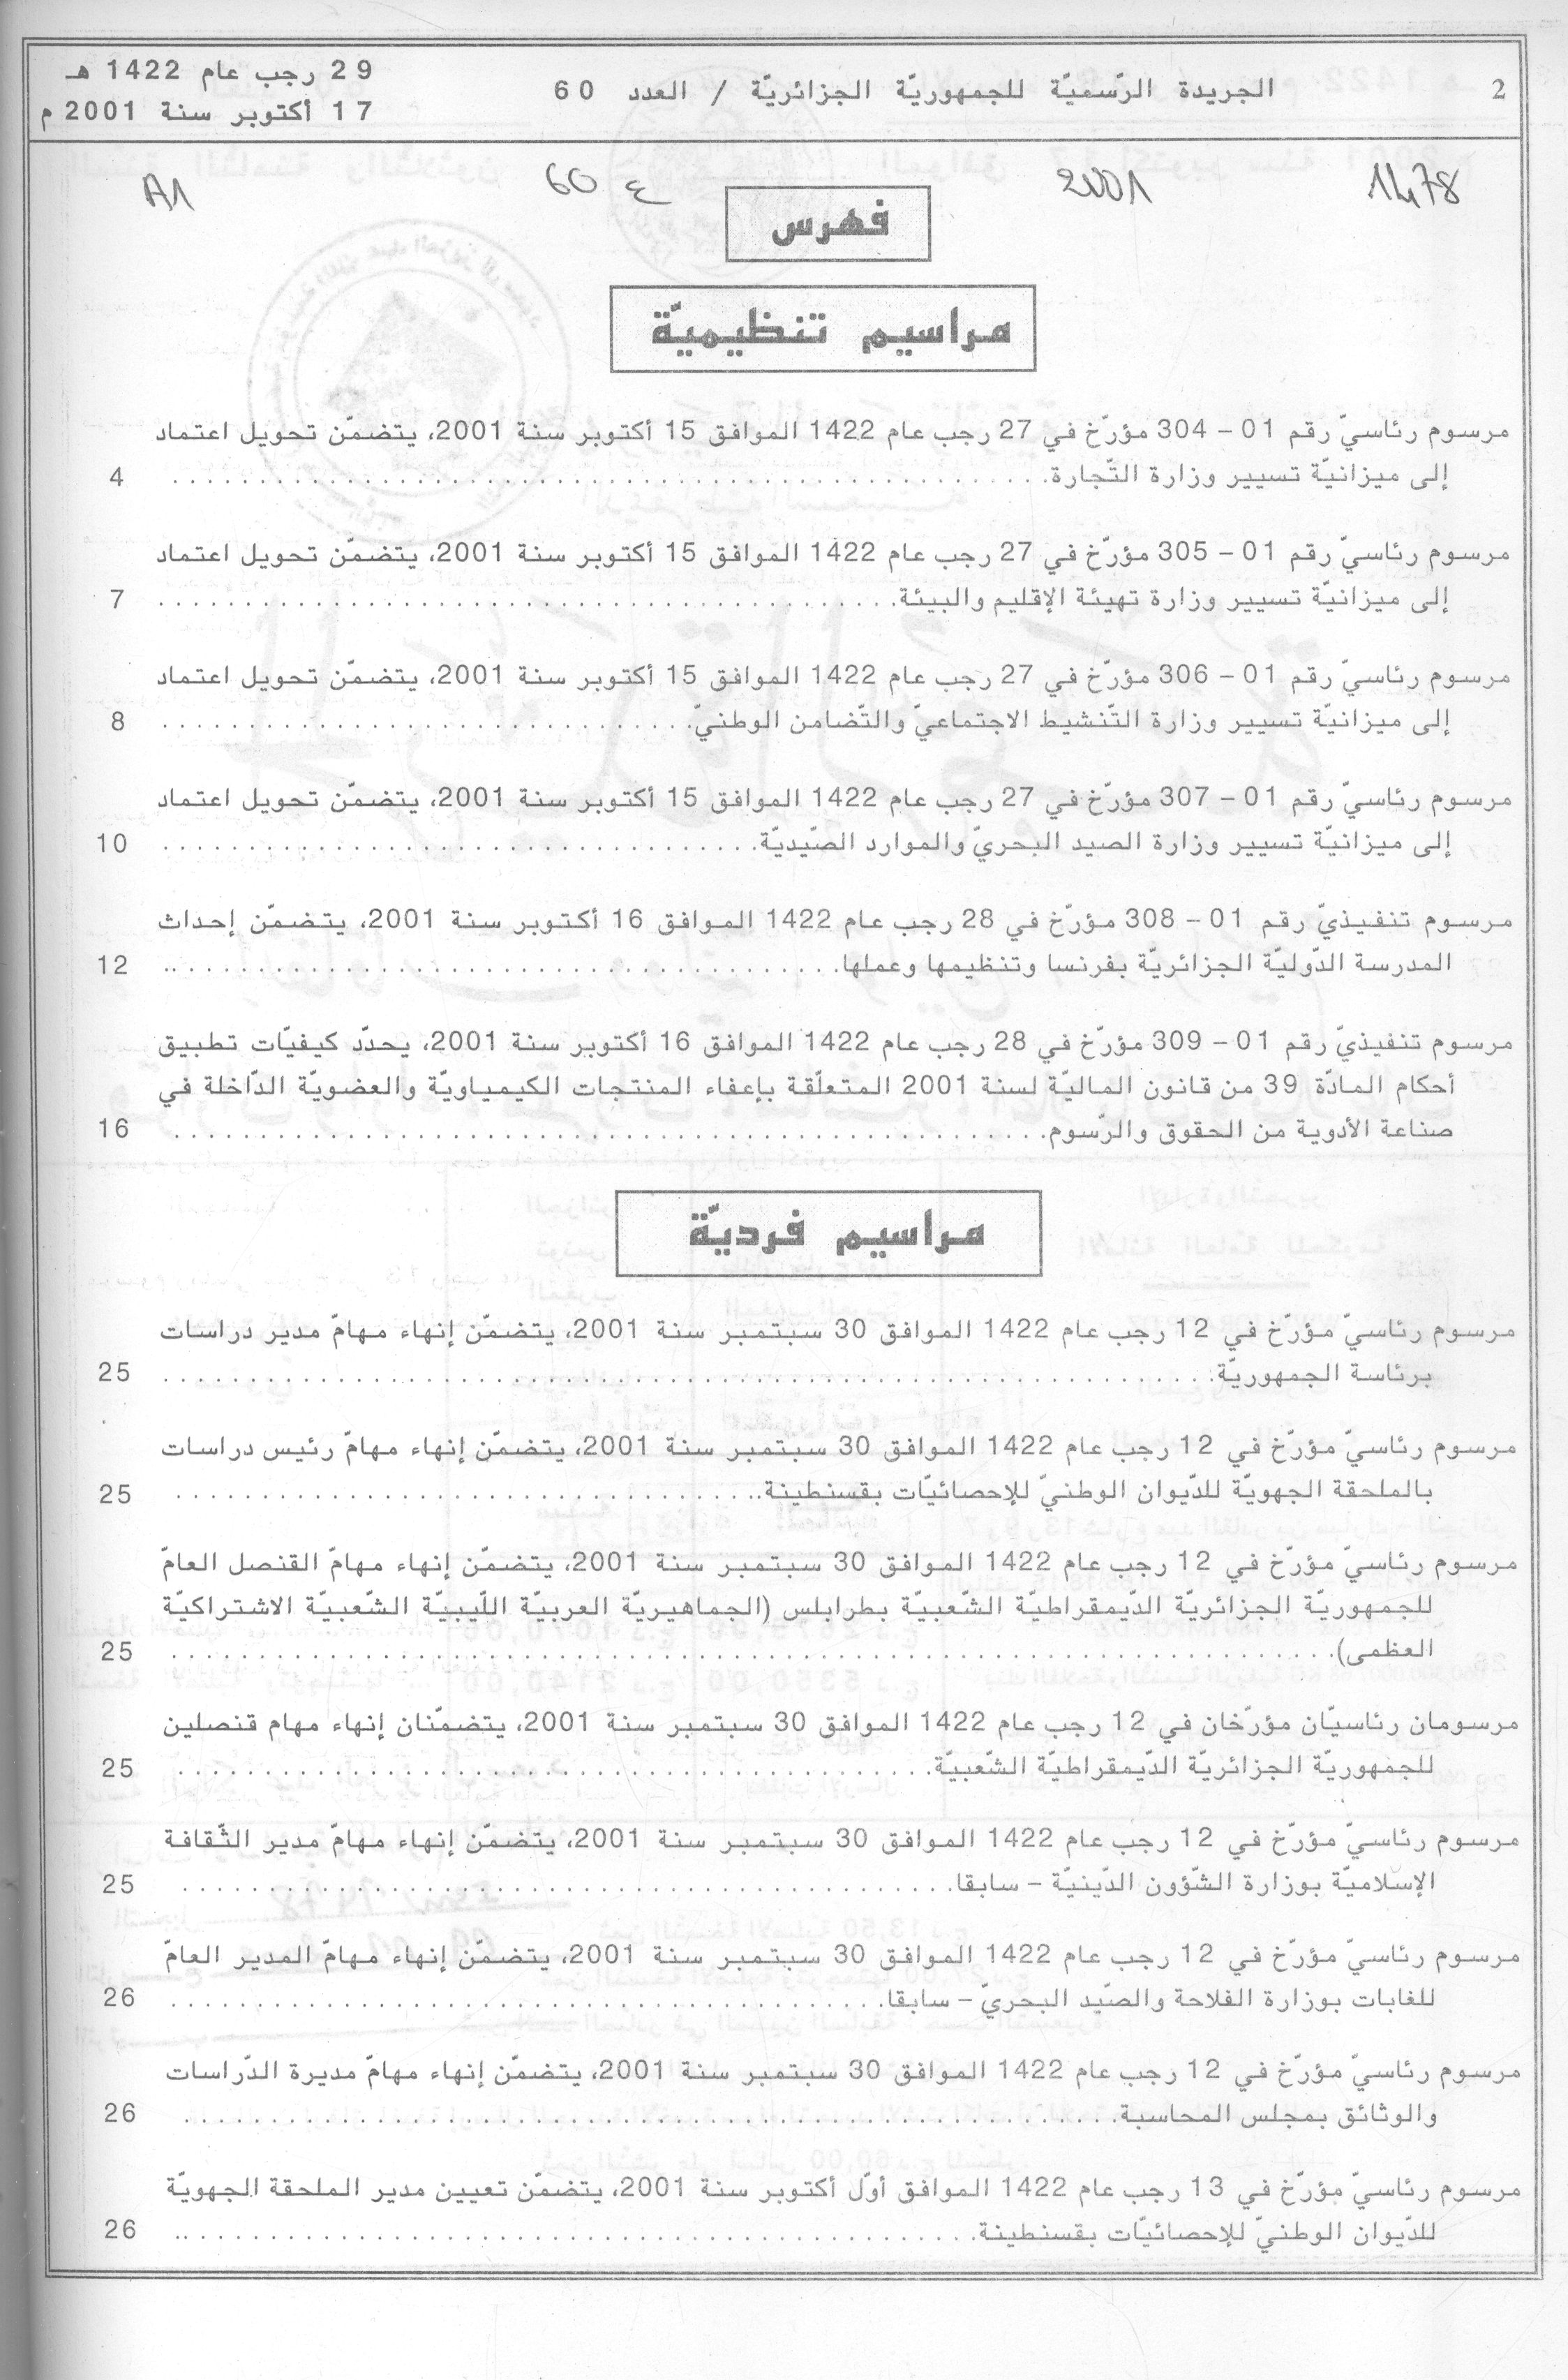 2
الجريدة الرّسميّة للجمهوريّة الجزائريّة / العدد 60
29 رجب عام 1422 هـ
17 أكتوبر سنة 2001 م
1478
2001
60 ع
A1
فهرس
مراسيم تنظيميّة
مرسوم رئاسيّ رقم 01 – 304 مؤرّخ في 27 رجب عام 1422 الموافق 15 أكتوبر سنة 2001، يتضمّن تحويل اعتماد
إلى ميزانيّة تسيير وزارة التّجارة. 4
مرسوم رئاسيّ رقم 01 – 305 مؤرّخ في 27 رجب عام 1422 الموافق 15 أكتوبر سنة 2001، يتضمّن تحويل اعتماد
إلى ميزانيّة تسيير وزارة تهيئة الإقليم والبيئة. 7
مرسوم رئاسيّ رقم 01 – 306 مؤرّخ في 27 رجب عام 1422 الموافق 15 أكتوبر سنة 2001، يتضمّن تحويل اعتماد
إلى ميزانيّة تسيير وزارة التّنشيط الاجتماعيّ والتّضامن الوطنيّ. 8
مرسوم رئاسيّ رقم 01 – 307 مؤرّخ في 27 رجب عام 1422 الموافق 15 أكتوبر سنة 2001، يتضمّن تحويل اعتماد
إلى ميزانيّة تسيير وزارة الصيد البحريّ والموارد الصّيديّة. 10
مرسوم تنفيذيّ رقم 01 – 308 مؤرّخ في 28 رجب عام 1422 الموافق 16 أكتوبر سنة 2001، يتضمّن إحداث
المدرسة الدّوليّة الجزائريّة بفرنسا وتنظيمها وعملها. 12
مرسوم تنفيذيّ رقم 01 – 309 مؤرّخ في 28 رجب عام 1422 الموافق 16 أكتوبر سنة 2001، يحدّد كيفيّات تطبيق
أحكام المادّة 39 من قانون الماليّة لسنة 2001 المتعلّقة بإعفاء المنتجات الكيمياويّة والعضويّة الدّاخلة في
صناعة الأدوية من الحقوق والرّسوم. 16
مراسيم فرديّة
مرسوم رئاسيّ مؤرّخ في 12 رجب عام 1422 الموافق 30 سبتمبر سنة 2001، يتضمّن إنهاء مهامّ مدير دراسات
برئاسة الجمهوريّة. 25
مرسوم رئاسيّ مؤرّخ في 12 رجب عام 1422 الموافق 30 سبتمبر سنة 2001، يتضمّن إنهاء مهامّ رئيس دراسات
بالملحقة الجهويّة للدّيوان الوطنيّ للإحصائيّات بقسنطينة. 25
مرسوم رئاسيّ مؤرّخ في 12 رجب عام 1422 الموافق 30 سبتمبر سنة 2001، يتضمّن إنهاء مهامّ القنصل العامّ
للجمهوريّة الجزائريّة الدّيمقراطيّة الشّعبيّة بطرابلس (الجماهيريّة العربيّة اللّيبيّة الشّعبيّة الاشتراكيّة
العظمى). 25
مرسومان رئاسيّان مؤرّخان في 12 رجب عام 1422 الموافق 30 سبتمبر سنة 2001، يتضمّنان إنهاء مهام قنصلين
للجمهوريّة الجزائريّة الدّيمقراطيّة الشّعبيّة. 25
مرسوم رئاسيّ مؤرّخ في 12 رجب عام 1422 الموافق 30 سبتمبر سنة 2001، يتضمّن إنهاء مهامّ مدير الثّقافة
الإسلاميّة بوزارة الشّؤون الدّينيّة – سابقا. 25
مرسوم رئاسيّ مؤرّخ في 12 رجب عام 1422 الموافق 30 سبتمبر سنة 2001، يتضمّن إنهاء مهامّ المدير العامّ
للغابات بوزارة الفلاحة والصّيد البحريّ – سابقا. 26
مرسوم رئاسيّ مؤرّخ في 12 رجب عام 1422 الموافق 30 سبتمبر سنة 2001، يتضمّن إنهاء مهامّ مديرة الدّراسات
والوثائق بمجلس المحاسبة. 26
مرسوم رئاسيّ مؤرّخ في 13 رجب عام 1422 الموافق أوّل أكتوبر سنة 2001، يتضمّن تعيين مدير الملحقة الجهويّة
للدّيوان الوطنيّ للإحصائيّات بقسنطينة. 26